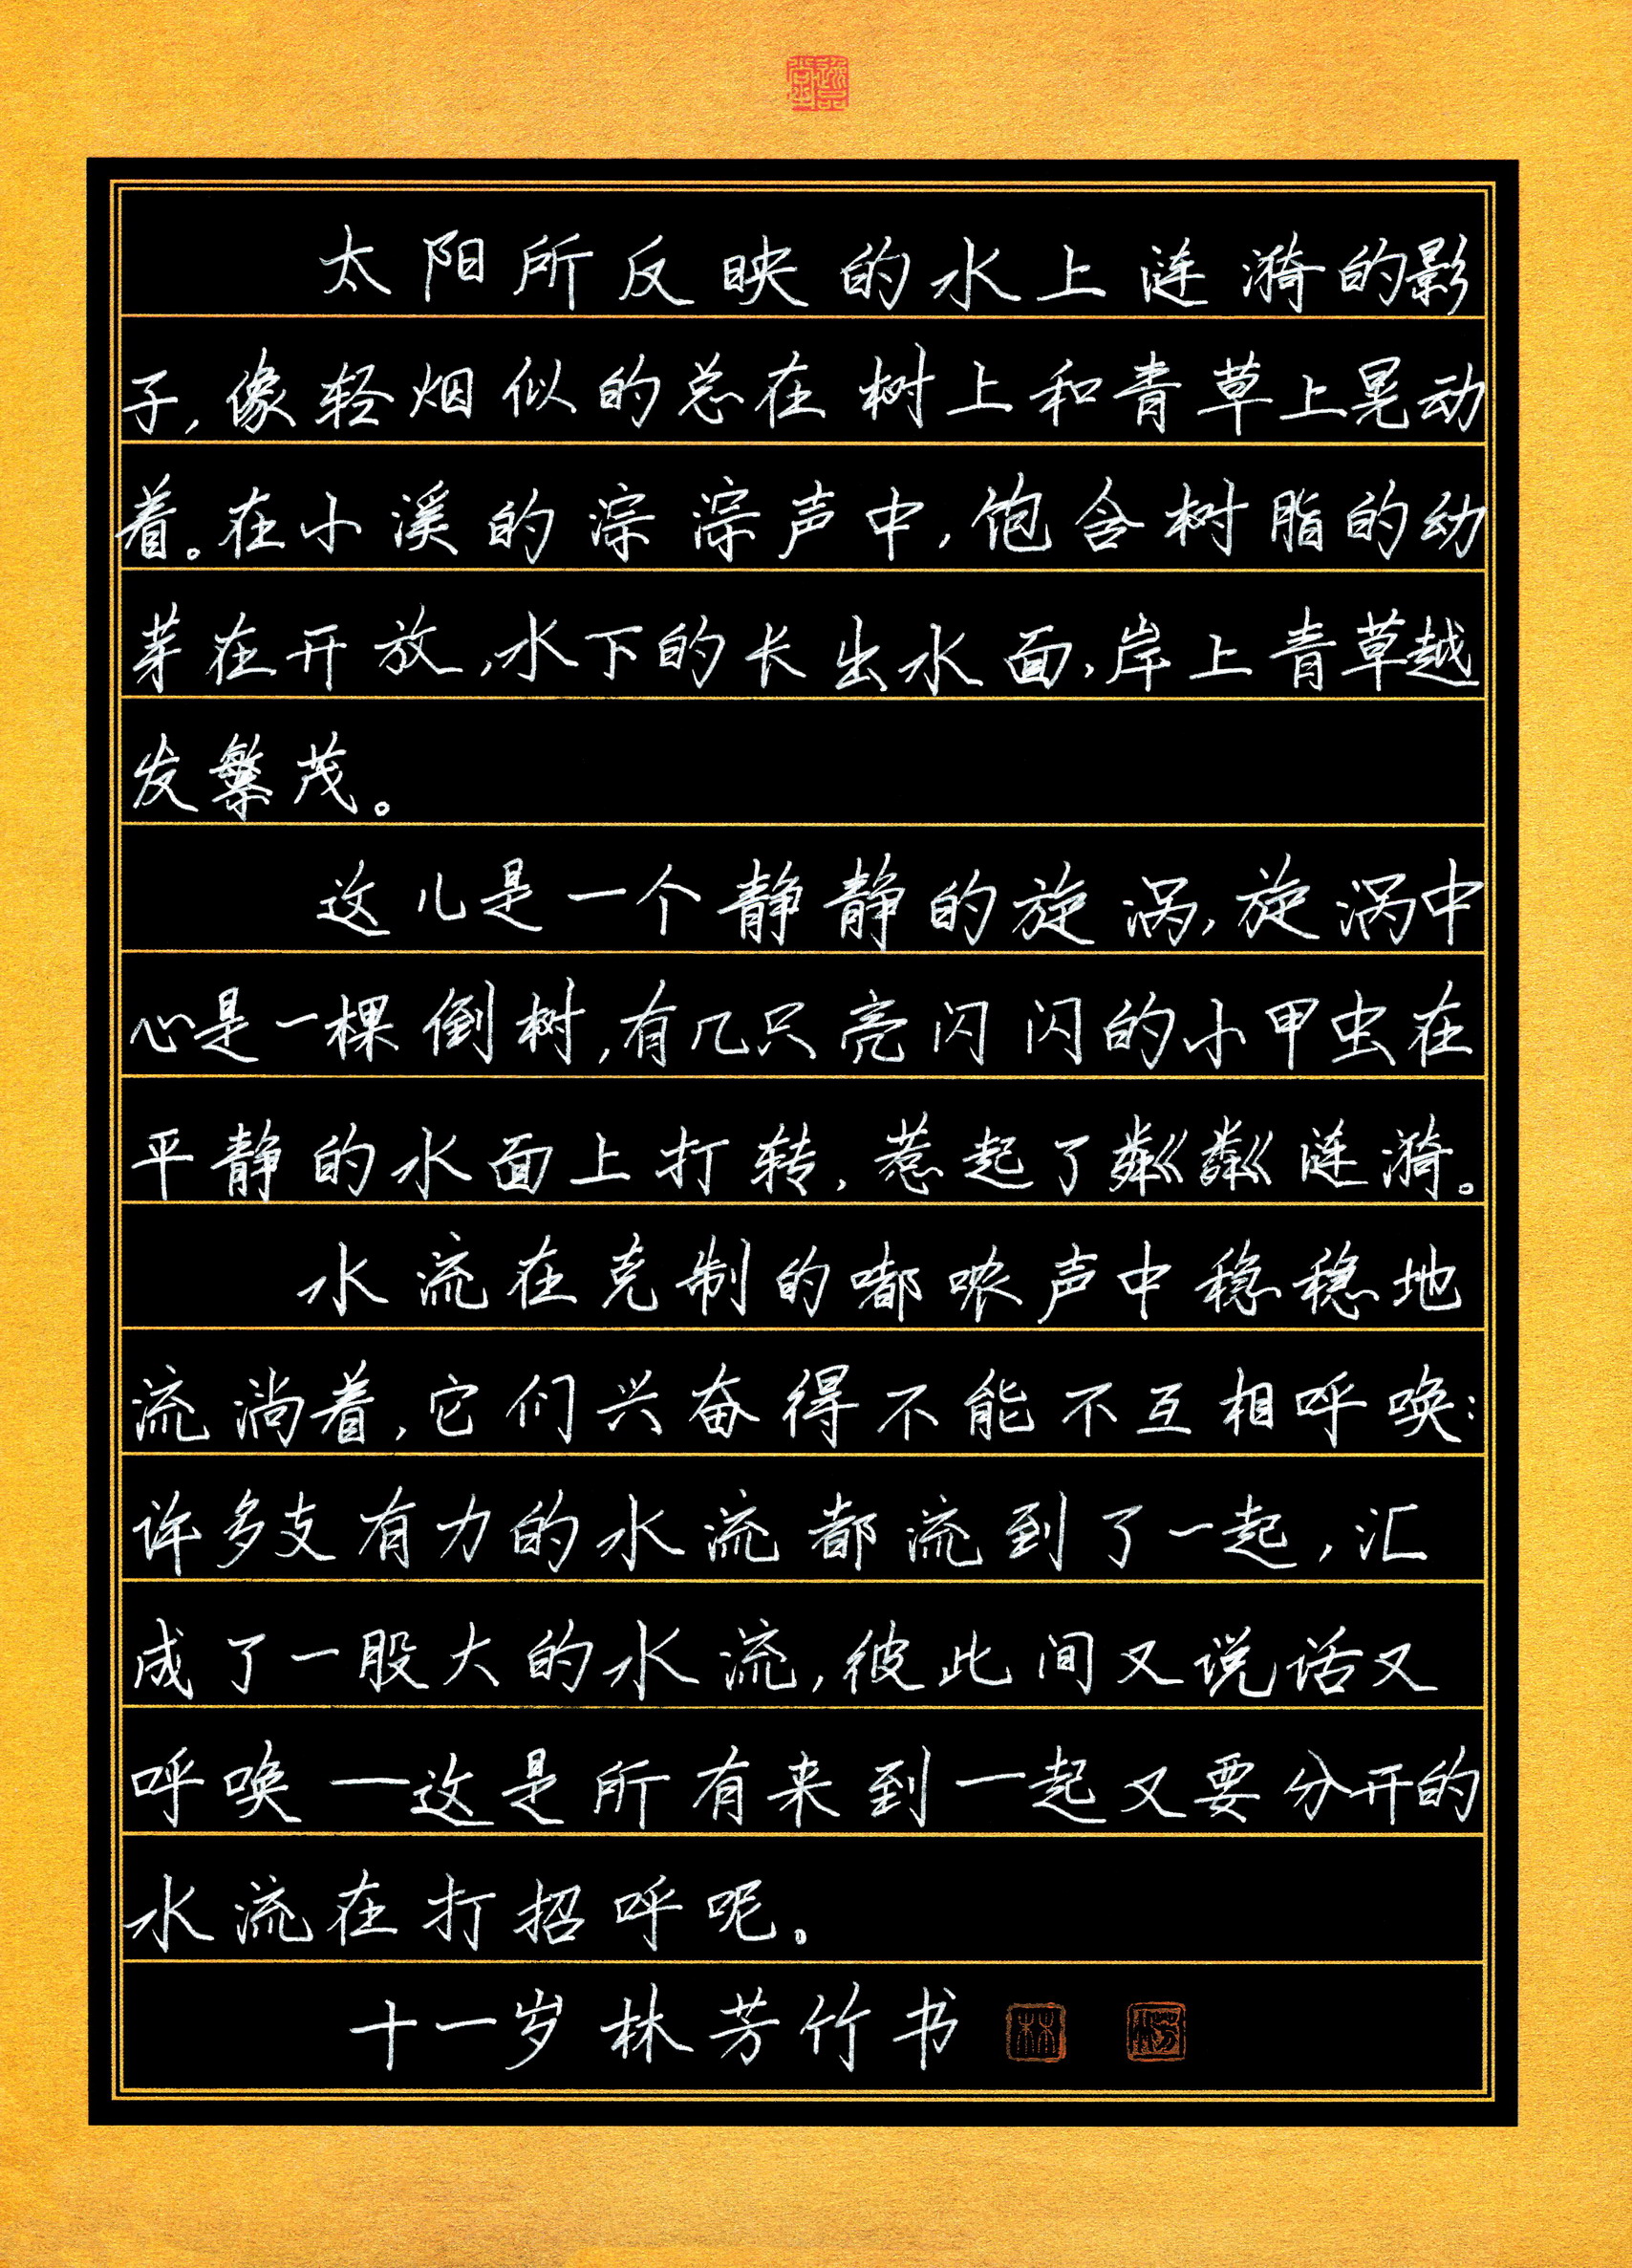 太阳所反映的水上涟漪的影
子，像轻烟似的总在树上和青草上晃动
着。在小溪的淙淙声中，饱含树脂的幼
芽在开放，水下的长出水面，岸上青草越
发繁茂。
这儿是一个静静的旋涡，旋涡中
心是一棵倒树，有几只亮闪闪的小甲虫在
平静的水面上打转，惹起了粼粼涟漪。
水流在克制的嘟哝声中稳稳地
流淌着，它们兴奋得不能不互相呼唤：
许多支有力的水流都流到了一起，汇
成了一股大的水流，彼此间又说话又
呼唤—这是所有来到一起又要分开的
水流在打招呼呢。
十一岁林芳竹书 林